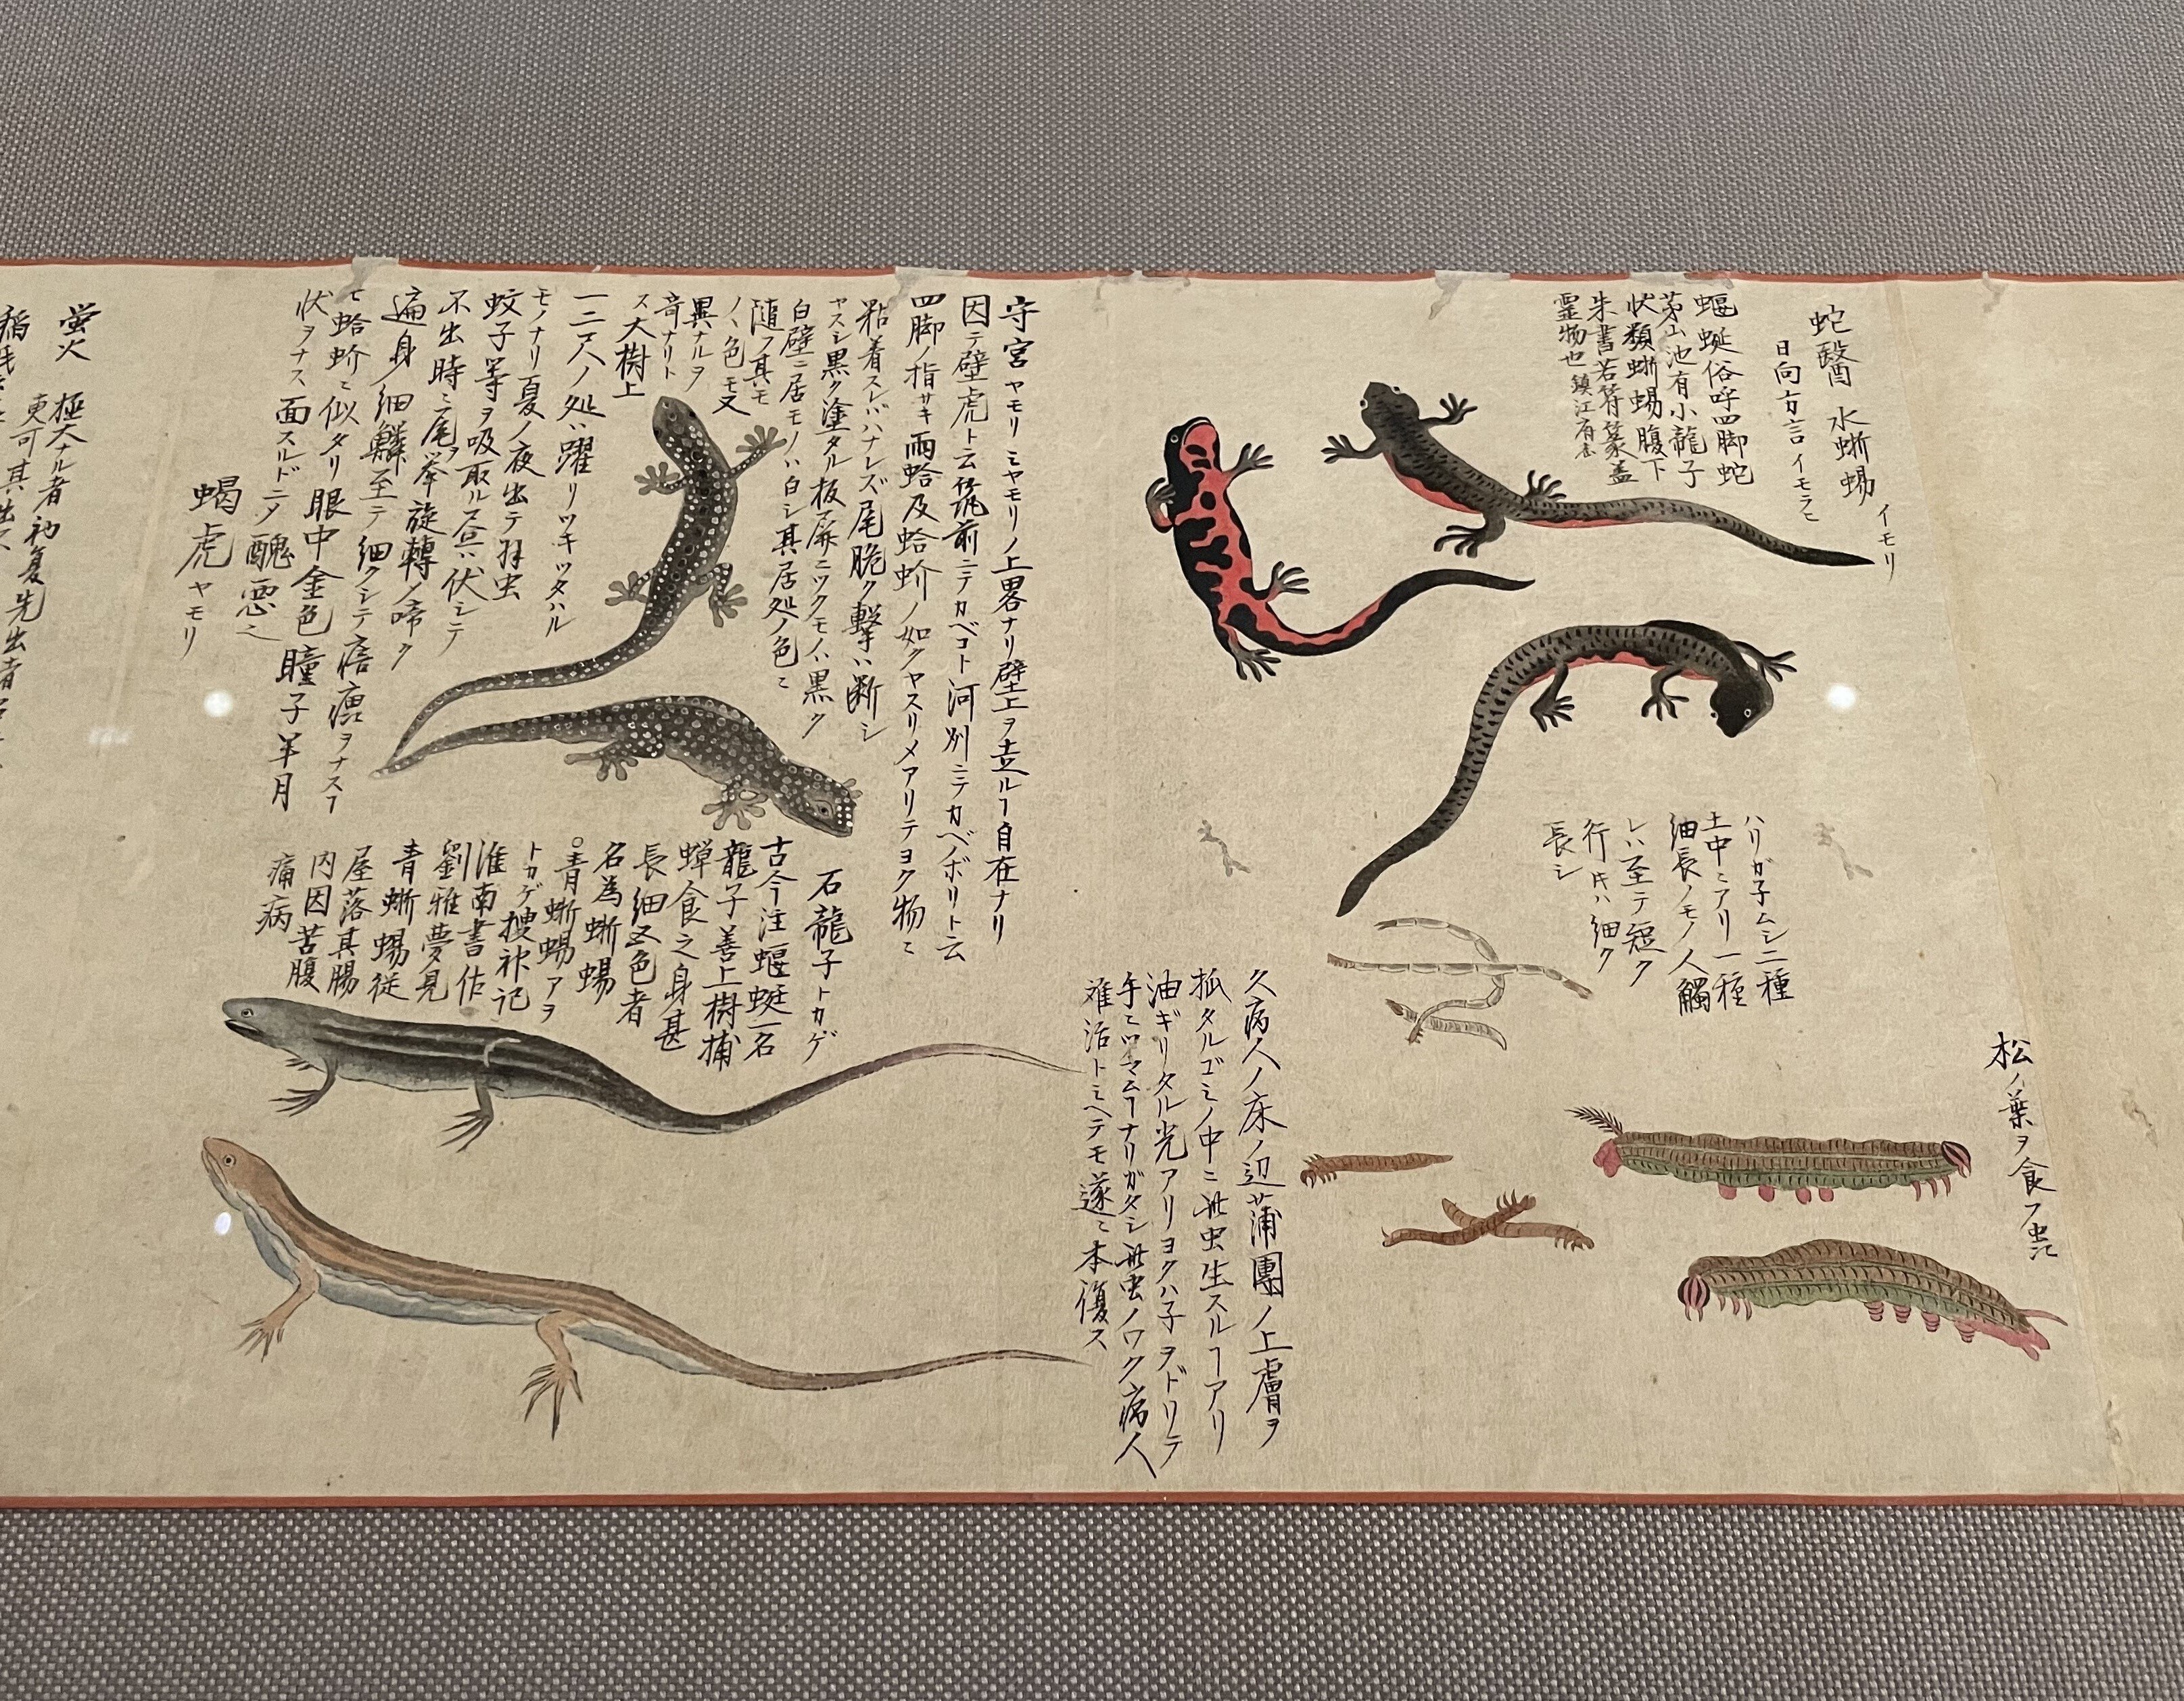 松ノ葉ヲ食フ虫
蛇醫 水蜥蜴 イモリ
日向方言イモラモ
蝘蜓俗呼四脚蛇
茅山池有小龍子
状類蜥蜴腹下
朱書若符篆蓋
霊物也 鎮江府志
ハリガ子ムシ二種
土中ニアリ一種
細長ノモノ人觸
レハ至テ短ク
行片ハ細ク
長シ
久病人ノ床ノ辺蒲團ノ上膚ヲ
抓タルゴミノ中ニ此虫生スルヿアリ
油ギリタル光アリヨクハ子ヲドリテ
手ニツマムヿナリガタシ此虫ノワク病人
难治トミヘテモ遂ニ本復ス
守宮 ヤモリ ミヤモリノ上畧ナリ壁上ヲ立ルヿ自在ナリ
因テ壁虎ト云筑前ニテカベコト河州ニテカベノボリト云
四脚ノ指サキ雨蛤及蛤蚧ノ如クヤスリメアリテヨク物ニ
粘着スレバハナレズ尾脆ク撃ハ断シ
ヤスシ黒ク塗タル板屏ニツクモノハ黒ク
白壁ニ居モノハ白シ其居処ノ色ニ
随フ其モ
ノヽ色モ又
異ナルヲ
竒ナリト
ス大樹上
一二尺ノ処ハ躍リツキツタハル
モノナリ夏ノ夜出テ羽虫
蚊子等ヲ吸取ル昼ハ伏シテ
不出時ニ尾ヲ挙旋轉ノ啼ク
遍身細鱗至テ細クシテ㾦㿔ヲナスヿ
モ蛤蚧ニ似タリ眼中金色瞳子半月
状ヲナス面スルドニメ醜悪之
蝎虎 ヤモリ
石龍子トカゲ
古今注蝘蜓一名
龍子善上樹捕
蝉食之身甚
長細五色者
名為蜥蜴
○青蜥蜴アヲ
トカゲ搜神记
淮南書佐
劉雅夢見
青蜥蜴從
屋落其腸
内因苦腹
痛病
螢火 極大ナル者初夏先出者